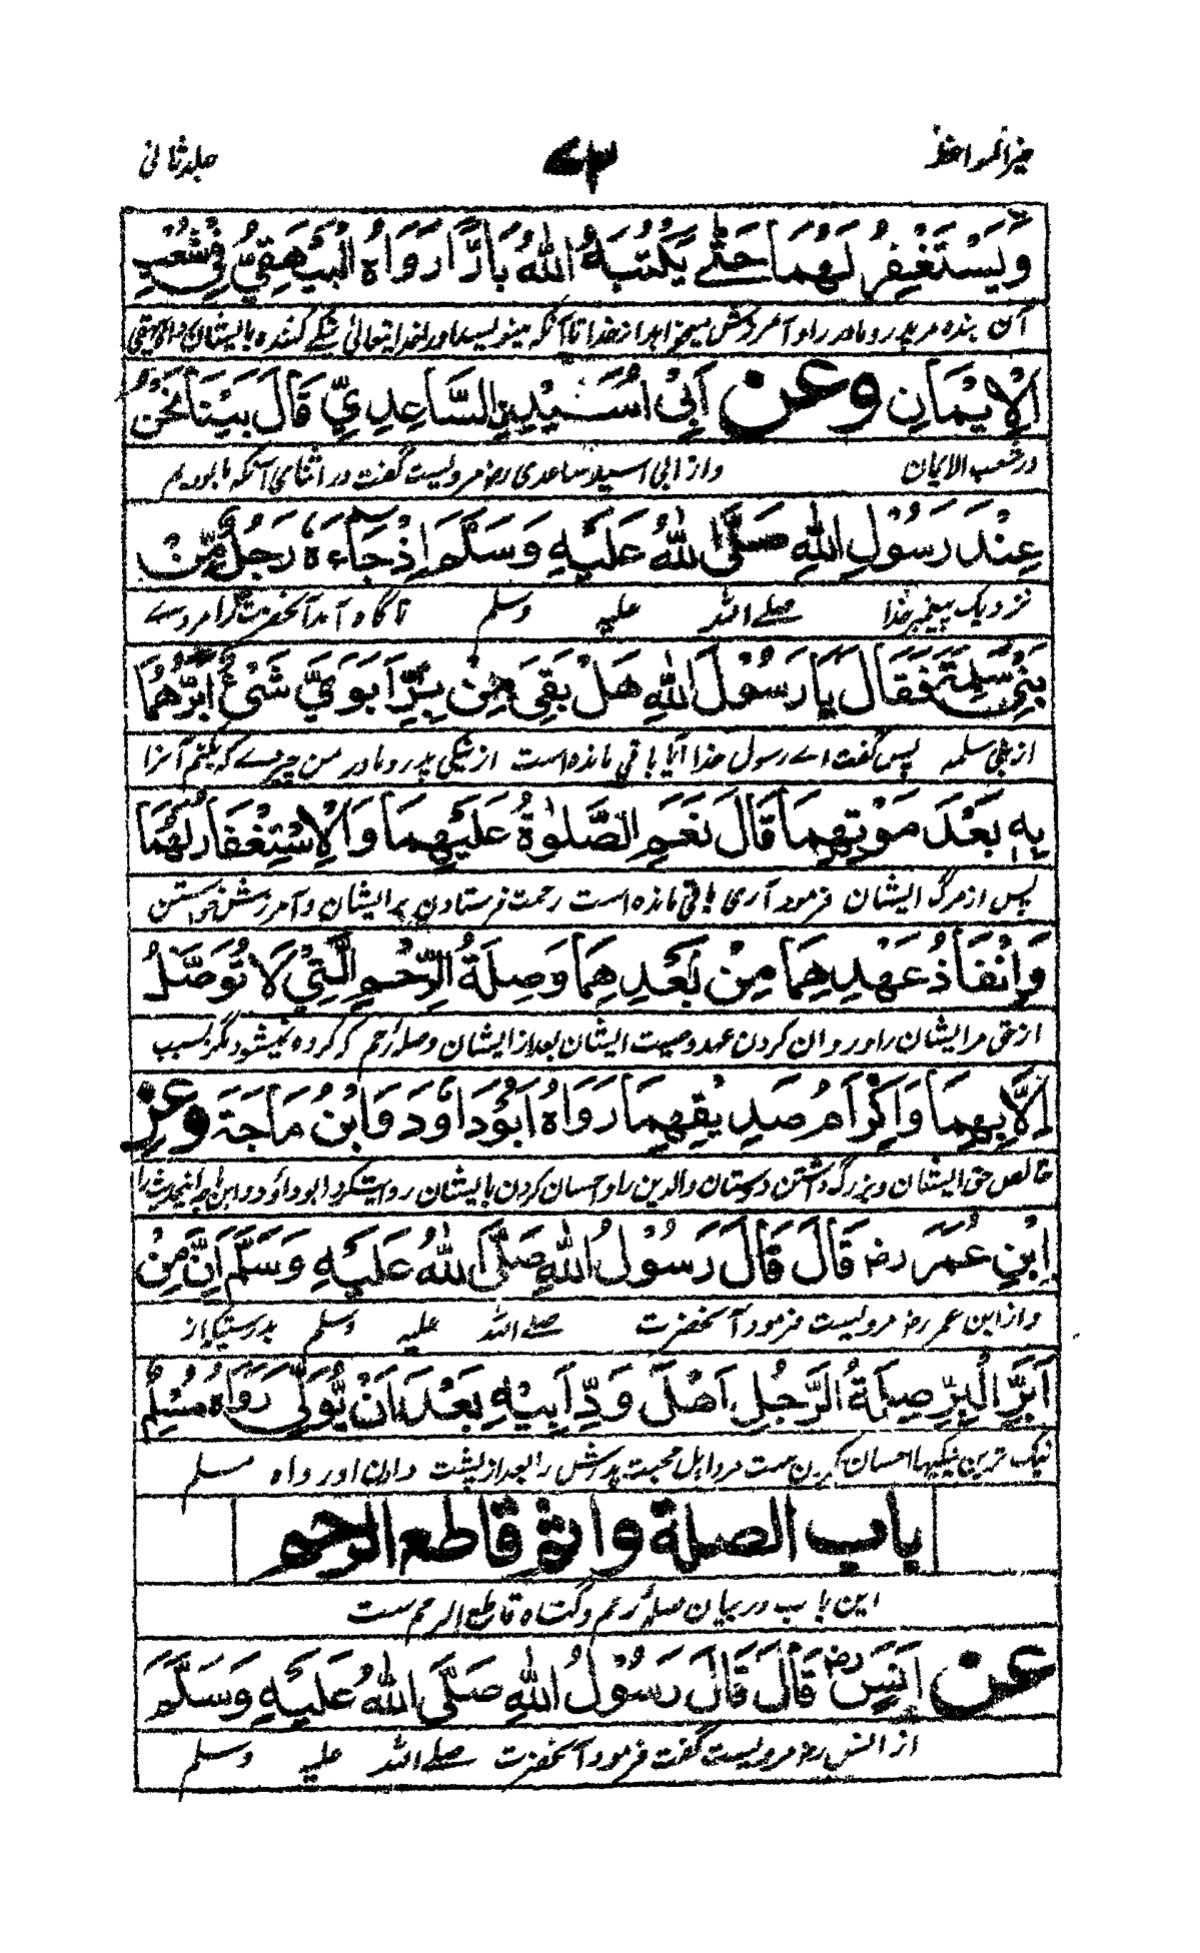 خیر المواعظ ۷۳ جلد ثانی
وَيَسْتَغْفِرُ لَهُمَا حَتّٰى يَكْتُبَهُ اللّٰهُ بَارًّا رَوَاهُ الْبَيْهَقِيُّ فِيْ شُعَبِ
آن بنده مر پدر و مادر را و آمرزش میخواهد از خدا تا آنکه مینویسد او را خدایتعالی نیکی کننده بایشان رواه بیهقی
الْاِيْمَانِ وعن اَبِيْ اُسَيْدِنِ السَّاعِدِيِّ قَالَ بَيْنَا نَحْنُ
در شعب الایمان واز ابی اسید ساعدی رضہ مرویست گفت در اثنای آنکه ما بودیم
عِنْدَ رَسُوْلِ اللّٰهِ صَلَّى اللّٰهُ عَلَيْهِ وَسَلَّمَ اِذْ جَاءَهٗ رَجُلٌ مِّنْ
نزدیک پیغمبر خدا صلے اللہ علیہ وسلم ناگاه آمد آنحضرت را مردے
بَنِيْ سَلِمَةَ فَقَالَ يَا رَسُوْلَ اللّٰهِ هَلْ بَقِيَ مِنْ بِرِّ اَبَوَيَّ شَيْءٌ اَبَرُّهُمَا
از بنی سلمہ پس گفت اے رسول خدا آیا باقی مانده است از نیکی پدر و مادر من چیزے کہ بکنم آنرا
بِهٖ بَعْدَ مَوْتِهِمَا قَالَ نَعَمِ الصَّلٰوةُ عَلَيْهِمَا وَالْاِسْتِغْفَارُ لَهُمَا
پس از مرگ ایشان فرمود آری باقی مانده است رحمت فرستادن بر ایشان و آمرزش خواستن
وَاِنْفَاذُ عَهْدِهِمَا مِنْ بَعْدِهِمَا وَصِلَةُ الرَّحِمِ الَّتِيْ لَا تُوْصَلُ
از حق مر ایشان را و روان کردن عهد وصیت ایشان بعد از ایشان وصلۂ رحم کہ کرده نمیشود مگر بسبب
اِلَّا بِهِمَا وَاِكْرَامُ صَدِيْقِهِمَا رَوَاهُ اَبُوْدَاوٗدَ وَابْنُ مَاجَةَ وعن
خالص حق ایشان و بزرگ داشتن دوستان والدین را و احسان کردن بایشان روایتکرد ابوداؤد و ابن ماجہ اینحدیث را
اِبْنِ عُمَرَ رضہ قَالَ قَالَ رَسُوْلُ اللّٰهِ صَلَّى اللّٰهُ عَلَيْهِ وَسَلَّمَ اِنَّ مِنْ
واز ابن عمر رضہ مرویست فرمود آنحضرت صلے اللہ علیہ وسلم بدرستیکہ از
اَبَرِّ الْبِرِّ صِلَةُ الرَّجُلِ اَهْلَ وَدِّ اَبِيْهِ بَعْدَ اَنْ يُّوَلِّيَ رَوَاهُ مُسْلِمٌ
نیک ترین نیکیها احسان کردن ست مرد اہل محبت پدرش را بعد از پشت دادن او رواه مسلم
باب الصلة واثم قاطع الرحم
این باب در بیان صلۂ رحم و گناه قاطع الرحم ست
عن اَنَسٍ رضہ قَالَ قَالَ رَسُوْلُ اللّٰهِ صَلَّى اللّٰهُ عَلَيْهِ وَسَلَّمَ
از انس رضہ مرویست گفت فرمود آنحضرت صلے اللہ علیہ وسلم